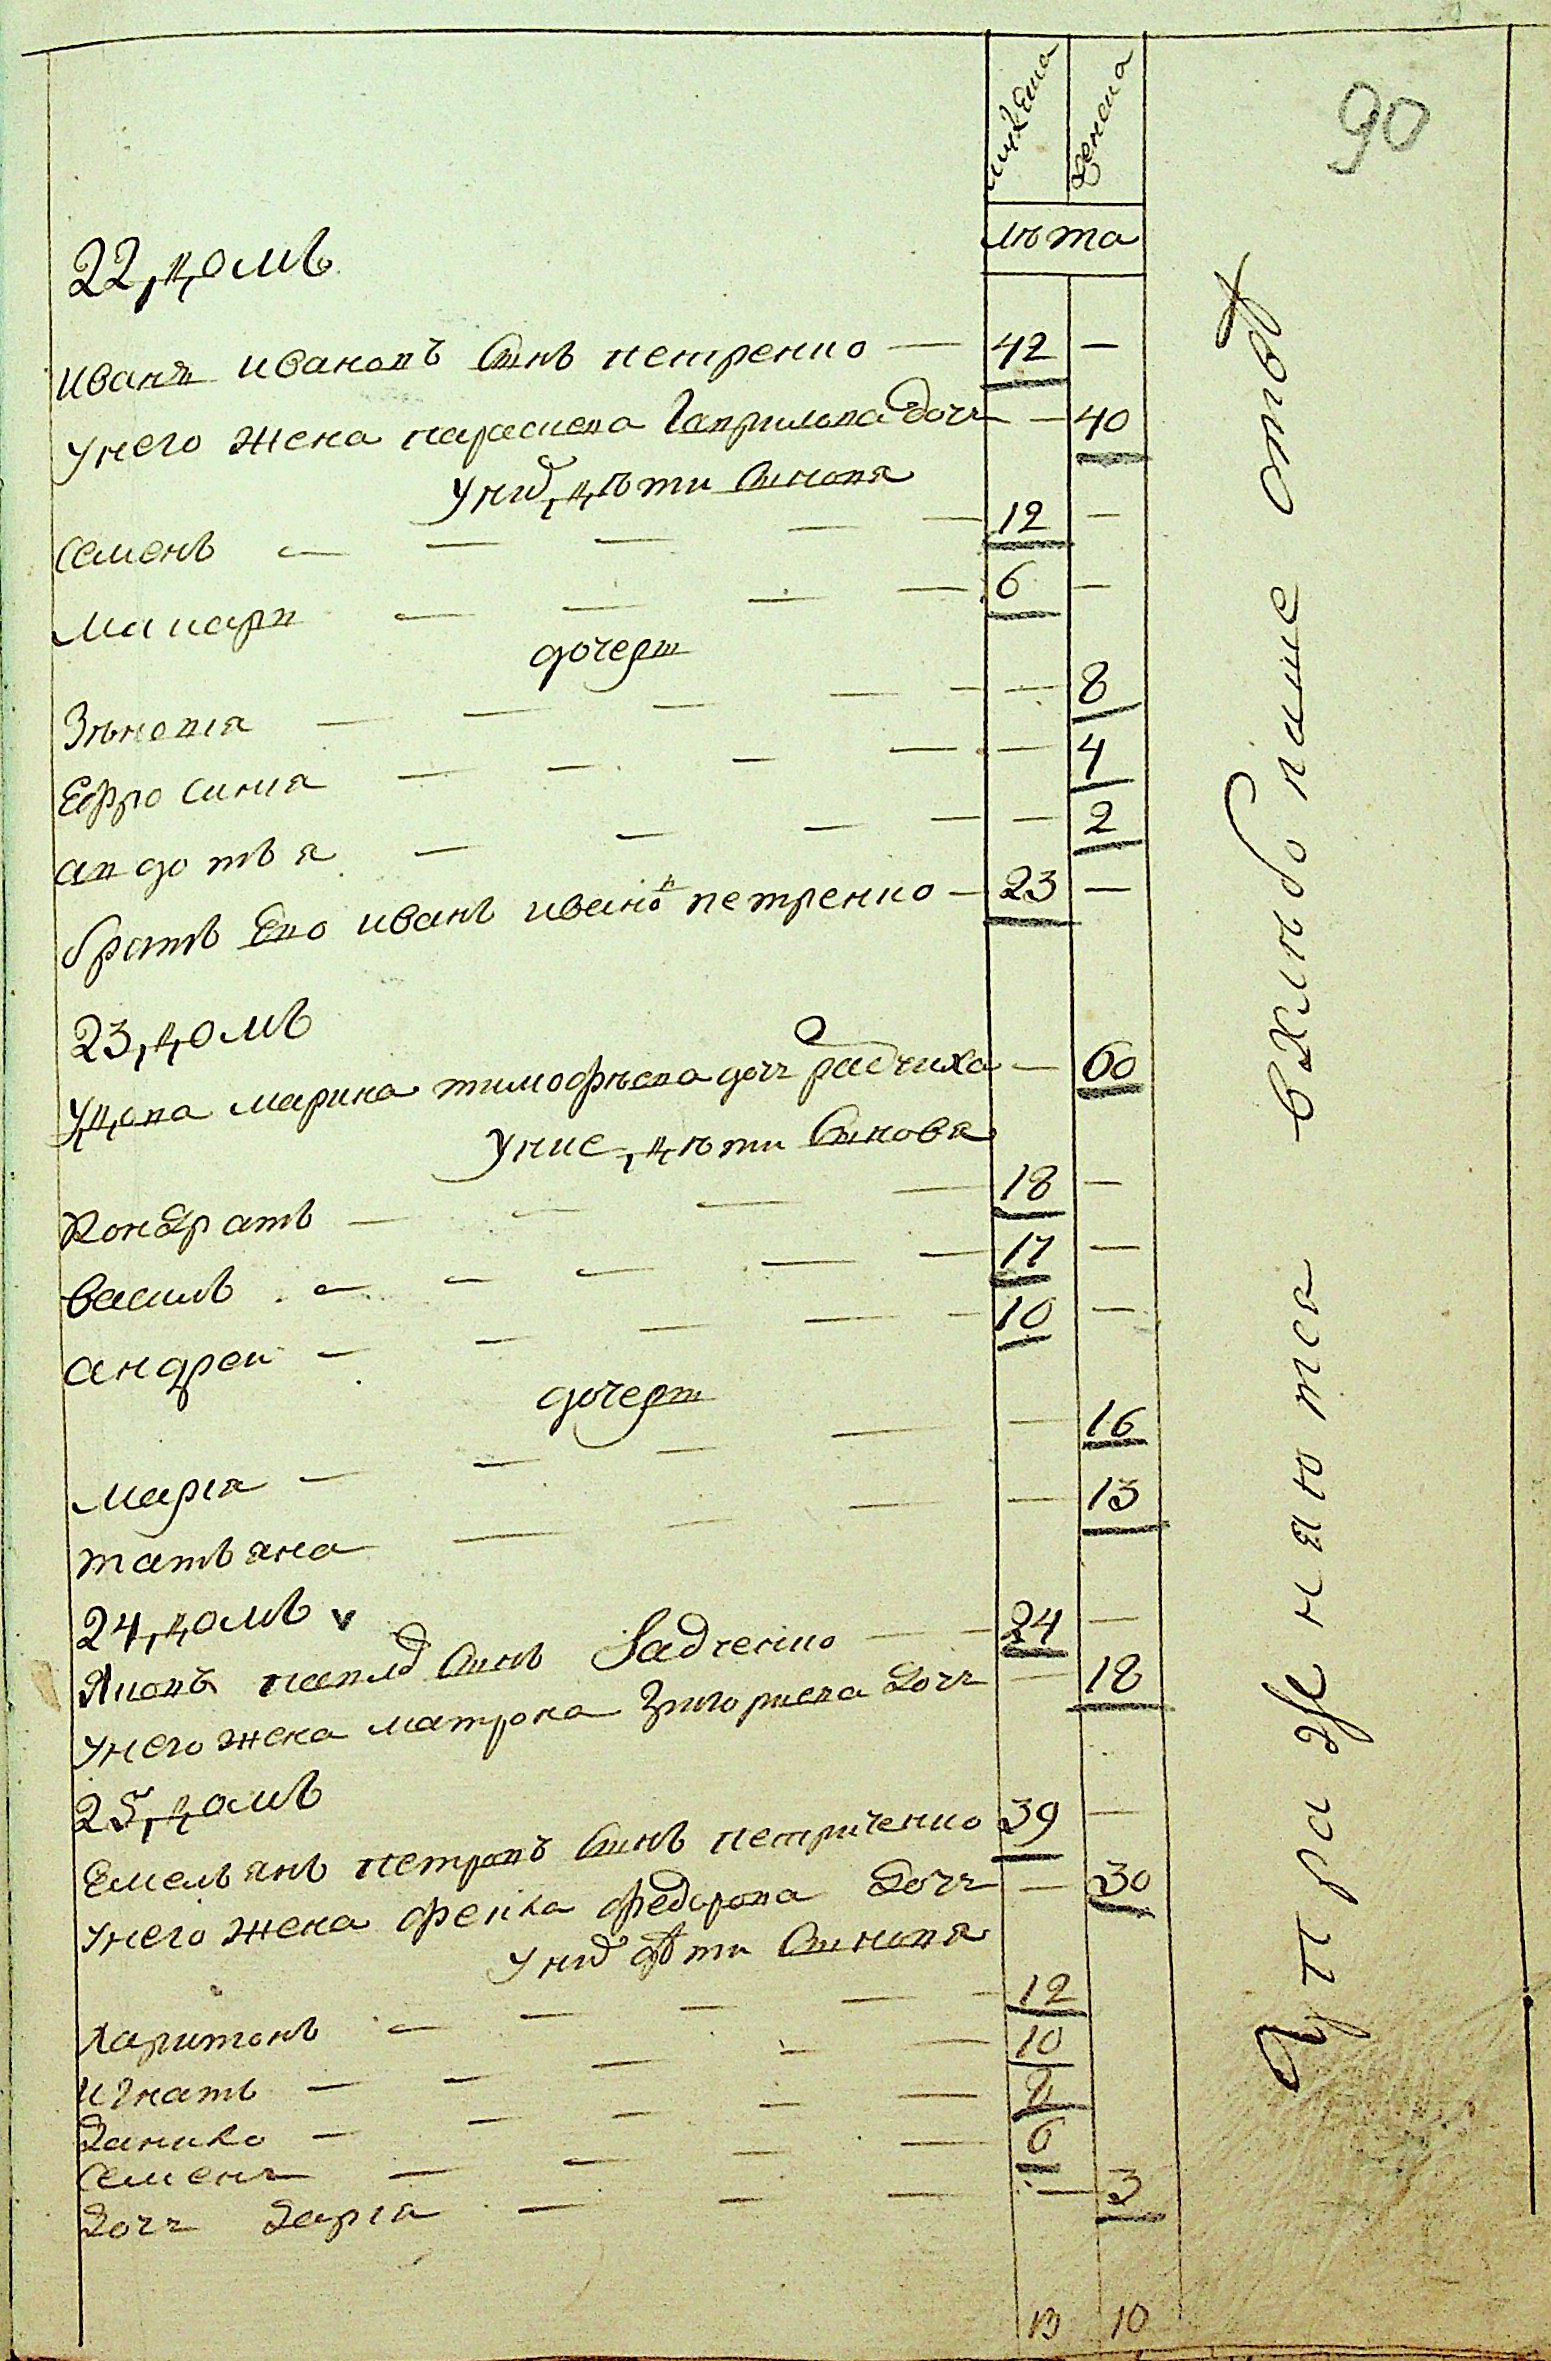 90
мужеска женска
лѣта
22, домъ
иванъ ивановъ синъ петренко — 42 —
унего жена параскева гаврилова дочъ — 40
уних, дѣти синовя
семенъ — 12 —
макаръ — 6 —
дочери
Зѣновия — — 8
Ефросиния — — 4
авдотья — — 2
братъ Ево иванъ иванов петренко — 23 —
23, домъ
удова марина тимофѣева дочъ радчиха — 60
унис, дѣти синовя
Кондратъ — 18 —
василь — 17 —
андреи — 10 —
дочери
мария — — 16
татьяна — — 13
24, домъ v
Яковъ павлов синъ Радченко — 24 —
унего жена матрона григориева дочъ — 18
25, домъ
Емельянъ петровъ синъ петриченко 39 —
унего жена федорова дочъ — 30
уних дѣти синовя
харитонъ — 12
игнатъ — 10
данило — 8
семенъ — 6
дочъ дария — — 3
13 10
Упражняются вхлѣбопашество